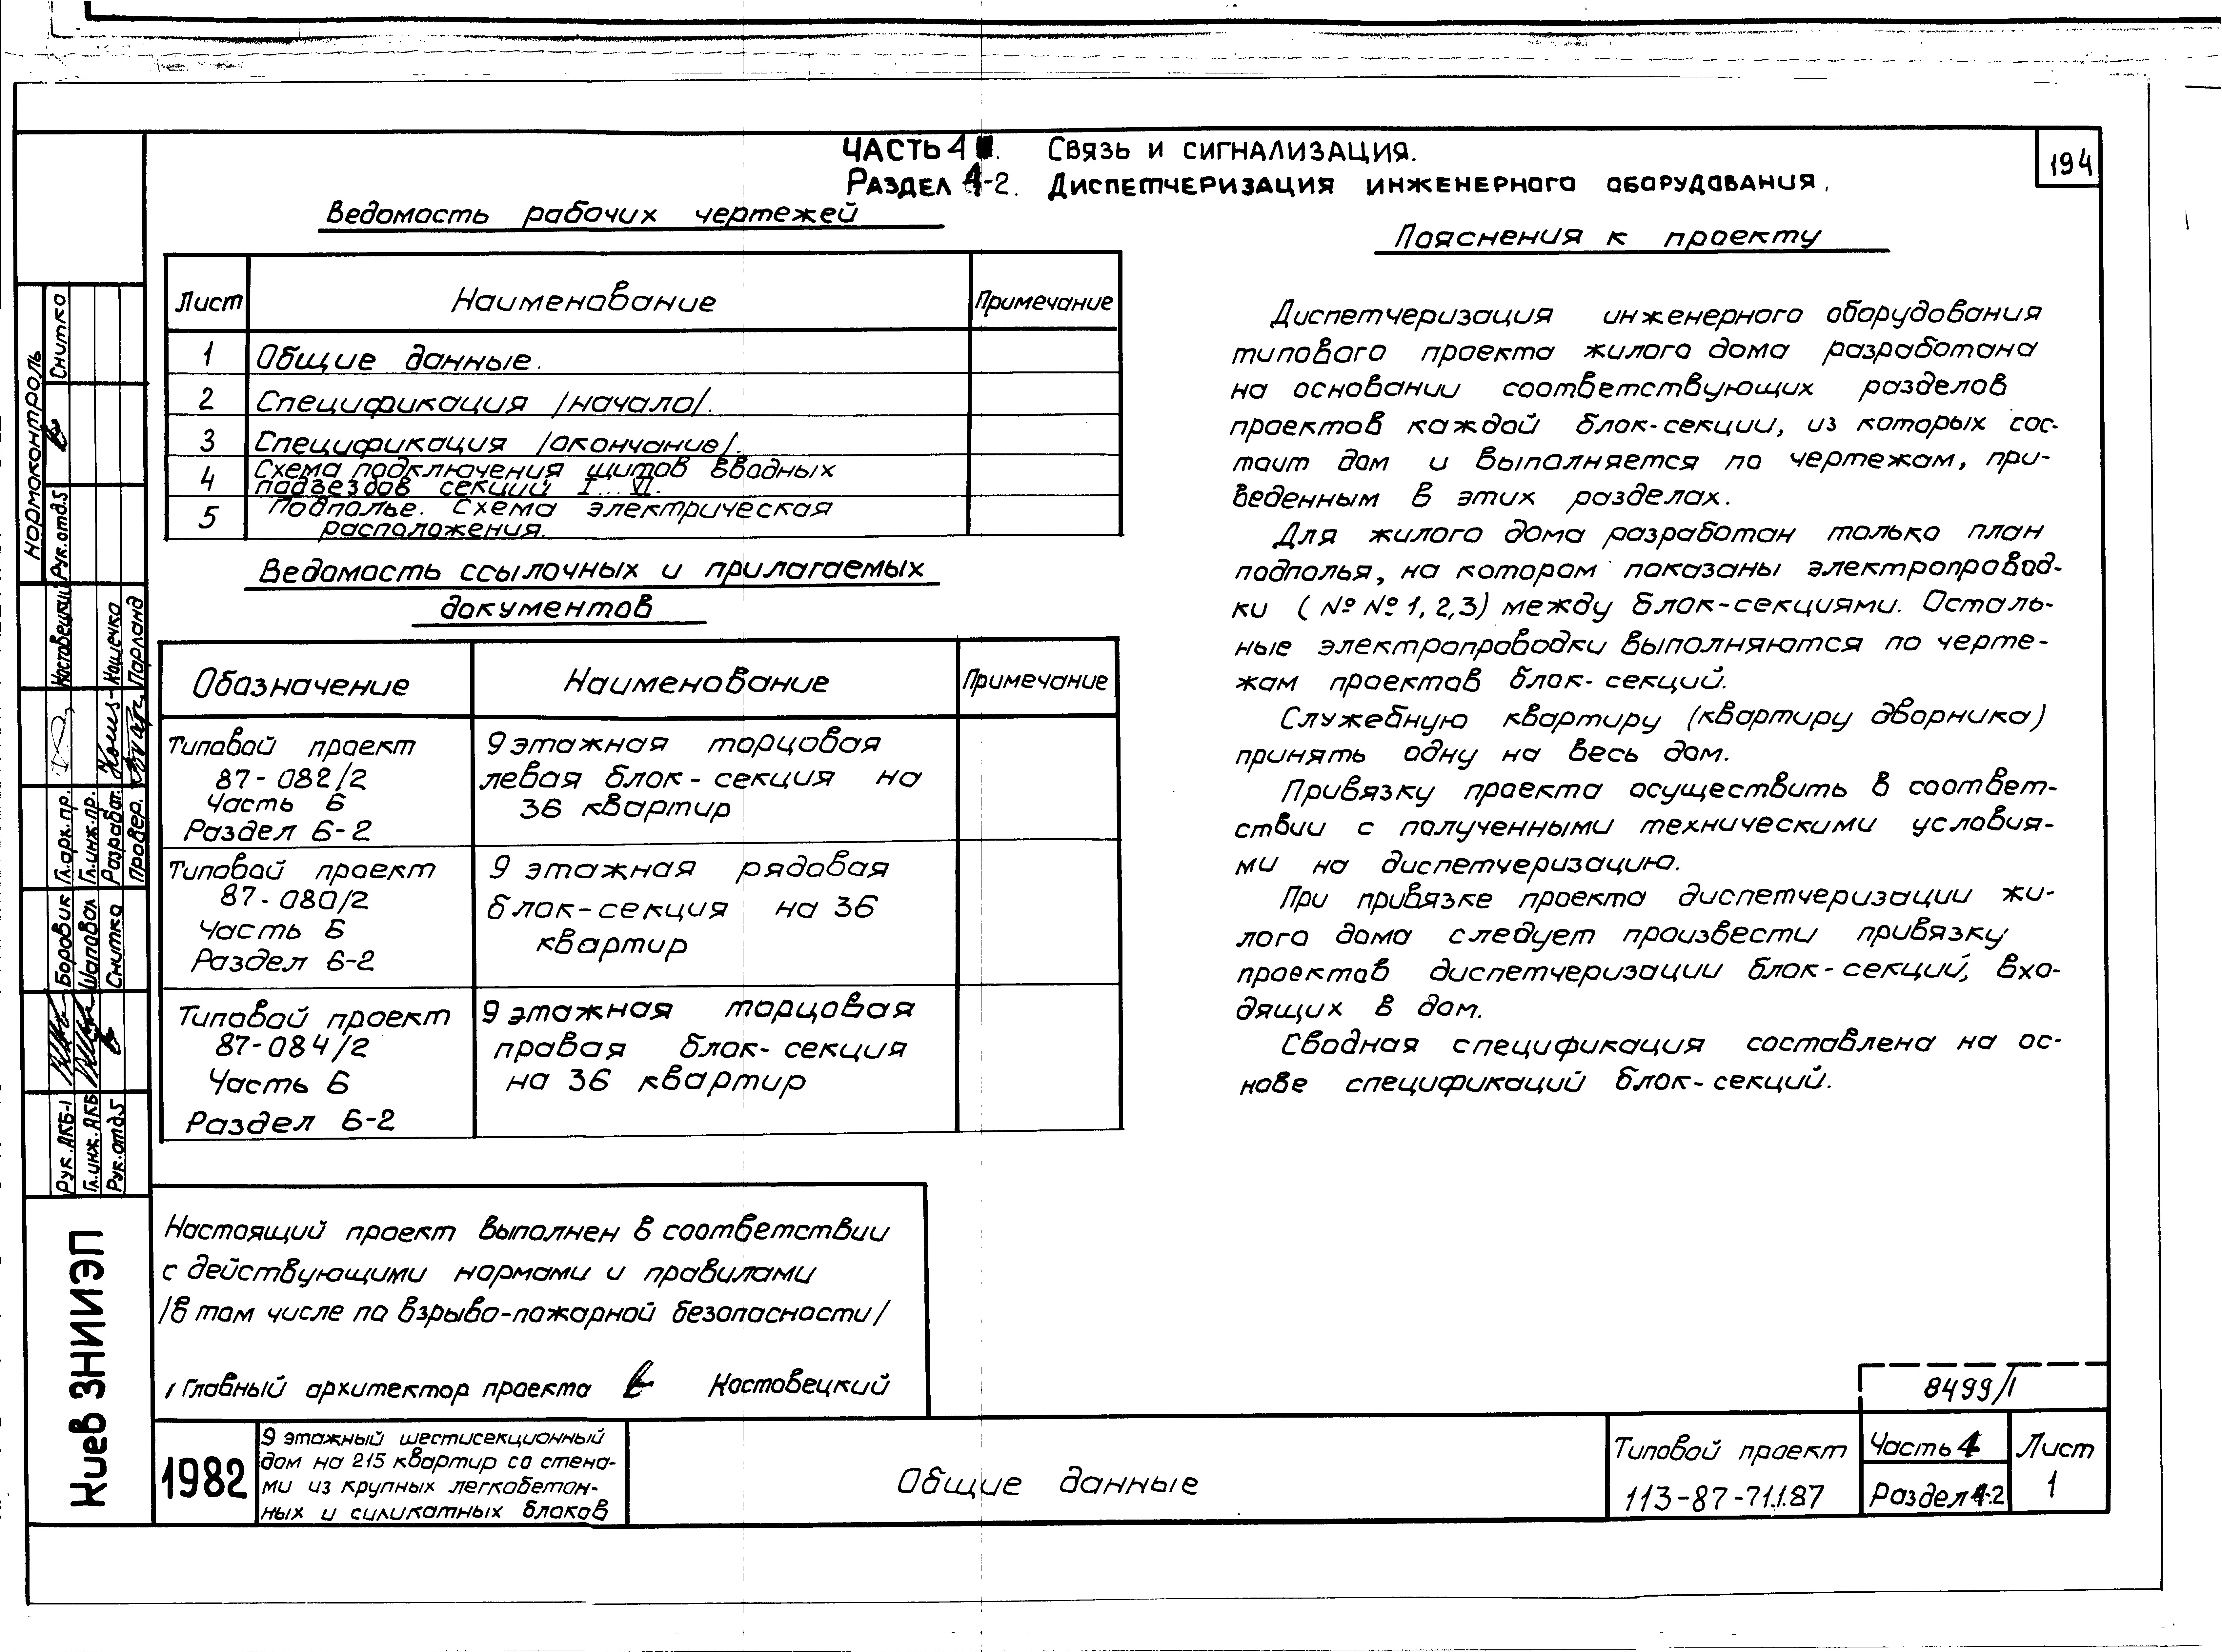 ЧАСТЬ 4. Связь и сигнализация.
Раздел 4-2. Диспетчеризация инженерного оборудования.
194
Ведомость рабочих чертежей
Лист Наименование Примечание
1 Общие данные.
2 Спецификация /начало/.
3 Спецификация /окончание/.
4 Схема подключения щитов вводных
подъездов секций I...VI.
5 Подполье. Схема электрическая
расположения.
Ведомость ссылочных и прилагаемых
документов
Обозначение Наименование Примечание
Типовой проект
87-082/2
Часть 6
Раздел 6-2
9 этажная торцовая
левая блок-секция на
36 квартир
Типовой проект
87-080/2
Часть 6
Раздел 6-2
9 этажная рядовая
блок-секция на 36
квартир
Типовой проект
87-084/2
Часть 6
Раздел 6-2
9 этажная торцовая
правая блок-секция
на 36 квартир
Пояснения к проекту
Диспетчеризация инженерного оборудования
типового проекта жилого дома разработана
на основании соответствующих разделов
проектов каждой блок-секции, из которых сос-
тоит дом и выполняется по чертежам, при-
веденным в этих разделах.
Для жилого дома разработан только план
подполья, на котором показаны электропровод-
ки (№№1,2,3) между блок-секциями. Осталь-
ные электропроводки выполняются по черте-
жам проектов блок-секций.
Служебную квартиру (квартиру дворника)
принять одну на весь дом.
Привязку проекта осуществить в соответ-
ствии с полученными техническими условия-
ми на диспетчеризацию.
При привязке проекта диспетчеризации жи-
лого дома следует произвести привязку
проектов диспетчеризации блок-секций, вхо-
дящих в дом.
Сводная спецификация составлена на ос-
нове спецификаций блок-секций.
Настоящий проект выполнен в соответствии
с действующими нормами и правилами
/в том числе по взрыво-пожарной безопасности/
Главный архитектор проекта Костовецкий
нормоконтроль
Рук.отд.5 Снитко
Гл.арх.пр. Костовецкий
Гл.инж.пр.
Разработ. Кошечко
Провер. Парланд
Рук.АКБ-1 Боровик
Гл.инж.АКБ Шаповал
Рук.отд.5 Снитко
Киев ЗНИИЭП
1982
9 этажный шестисекционный
дом на 215 квартир со стена-
ми из крупных легкобетон-
ных и силикатных блоков
Общие данные
8499/1
Типовой проект
113-87-71.1.87
Часть 4
Раздел 4-2
Лист
1